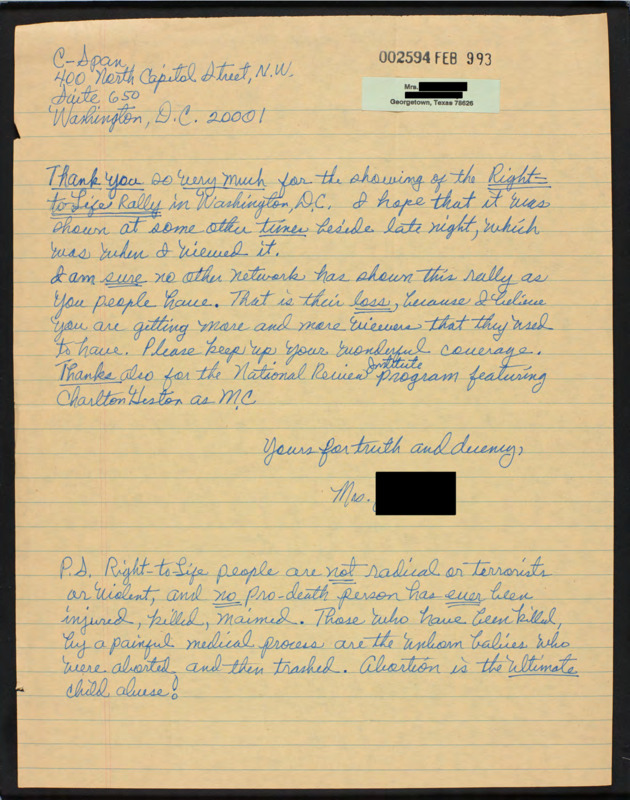 C-Span
400 North Capitol Street, N.W.
Suite 650
Washington, D.C. 20001
002594 FEB 993
Mrs.
Georgetown, Texas 78626
Thank you so very much for the showing of the Right-
to-Life Rally in Washington, D.C. I hope that it was
shown at some other times beside late night, which
was when I viewed it.
I am sure no other network has shown this rally as
you people have. That is their loss, because I believe
you are getting more and more viewers that they used
to have. Please keep up your wonderful coverage.
Thanks also for the National Review Institute program featuring
Charlton Heston as M.C
Yours for truth and decency,
Mrs.
P.S. Right-to-Life people are not radical or terrorists
or violent, and no pro-death person has ever been
injured, killed, maimed. Those who have been killed,
by a painful medical process are the unborn babies who
were aborted and then trashed. Abortion is the ultimate
child abuse!